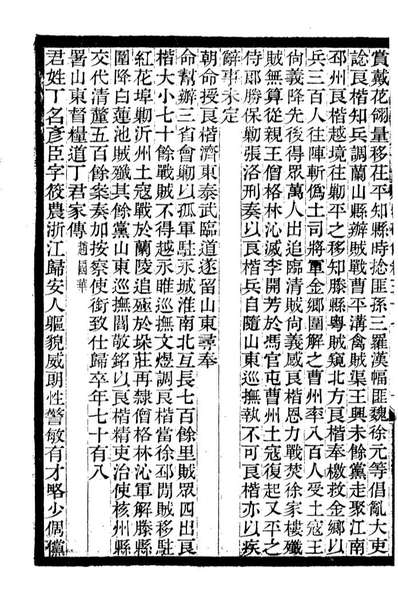 賞戴花翎量移茌平知縣時捻匪孫三羅漢幅匪魏徐元等倡亂大吏
諗良楷知兵調蘭山縣辦賊戰曹平溝禽賊渠王興未餘黨走聚江南
邳州良楷越境往勦平之移知滕縣粵賊窺北方良楷奉檄救金鄉以
兵三百人往陣斬僞土司將軍金鄉圍解之曹州率八百人受土寇王
尙義降先後得眾萬人出追臨清賊尙義感良楷恩力戰焚徐家樓殲
賊無算從親王僧格林沁滅李開芳於馮官屯曹州土寇復起又平之
侍郎勝保勦張洛刑奏以良楷兵自隨山東巡撫執不可良楷亦以疾
辭事未定
朝命授良楷濟東泰武臨道遂留山東尋奉
命幫辦三省會勦以孤軍駐永城淮南北亙長七百餘里賊眾四出良
楷大小七十餘戰賊不得越永睢巡撫文煜調良楷當徐邳閒賊移駐
紅花埠勦沂州土寇戰於蘭陵追殛於垛莊再隸僧格林沁軍解滕縣
圍降白蓮池賊殲其餘黨山東巡撫閻敬銘以良楷精吏治使核州縣
交代清釐五百餘案奏加按察使銜致仕歸卒年七十有八
署山東督糧道丁君家傳 趙國華
君姓丁名彥臣字筱農浙江歸安人軀貌威朗性警敏有才略少倜儻